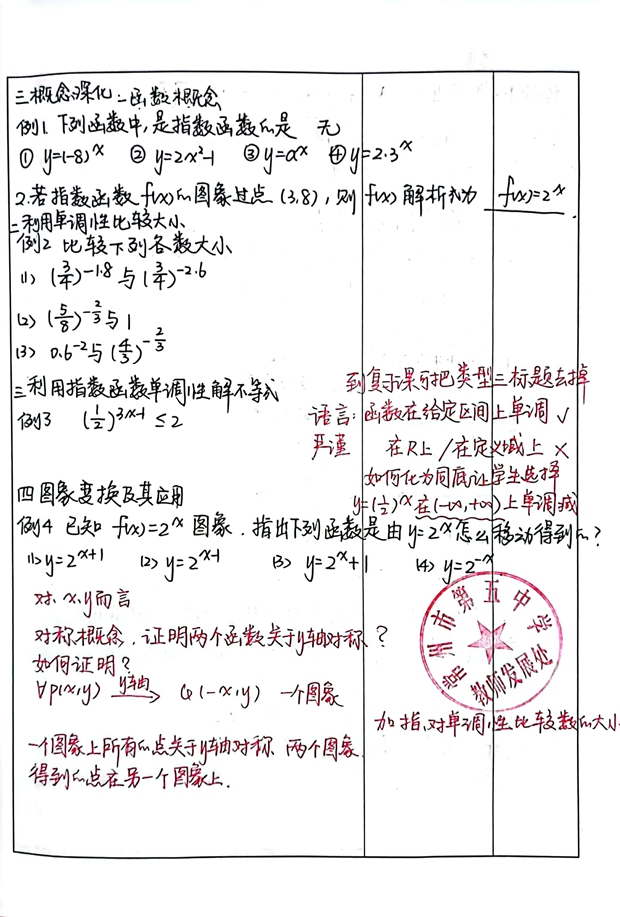 三概念深化一函数概念
例1. 下列函数中,是指数函数的是 无
① y=(-8)^x ② y=2x²-1 ③ y=a^x ④ y=2·3^x
2.若指数函数f(x)的图象过点(3,8),则f(x)解析式为 f(x)=2^x.
二利用单调性比较大小
例2 比较下列各数大小
(1) (3/4)^-1.8 与 (3/4)^-2.6
(2) (5/8)^-2/3 与1
(3) 0.6^-2 与 (4/3)^-2/3
三利用指数函数单调性解不等式
例3 (1/2)^3x-1 ≤2
到复示课可把类型三标题去掉
语言:函数在给定区间上单调 √
严谨 在R上/在定义域上 ×
如何化为同底让学生选择
y=(1/2)^x 在(-∞,+∞)上单调减
四图象变换及其应用
例4 已知 f(x)=2^x 图象.指出下列函数是由y=2^x怎么移动得到的?
(1) y=2^x+1 (2) y=2^x-1 (3) y=2^x+1 (4) y=2^-x
对x.y而言
对称概念.证明两个函数关于y轴对称?
如何证明?
∀p(x,y) y轴 Q(-x,y) 一个图象
常州市第五中学
教师发展处
加指,对单调性比较数的大小
一个图象上所有的点关于y轴对称 两个图象.
得到的点在另一个图象上.